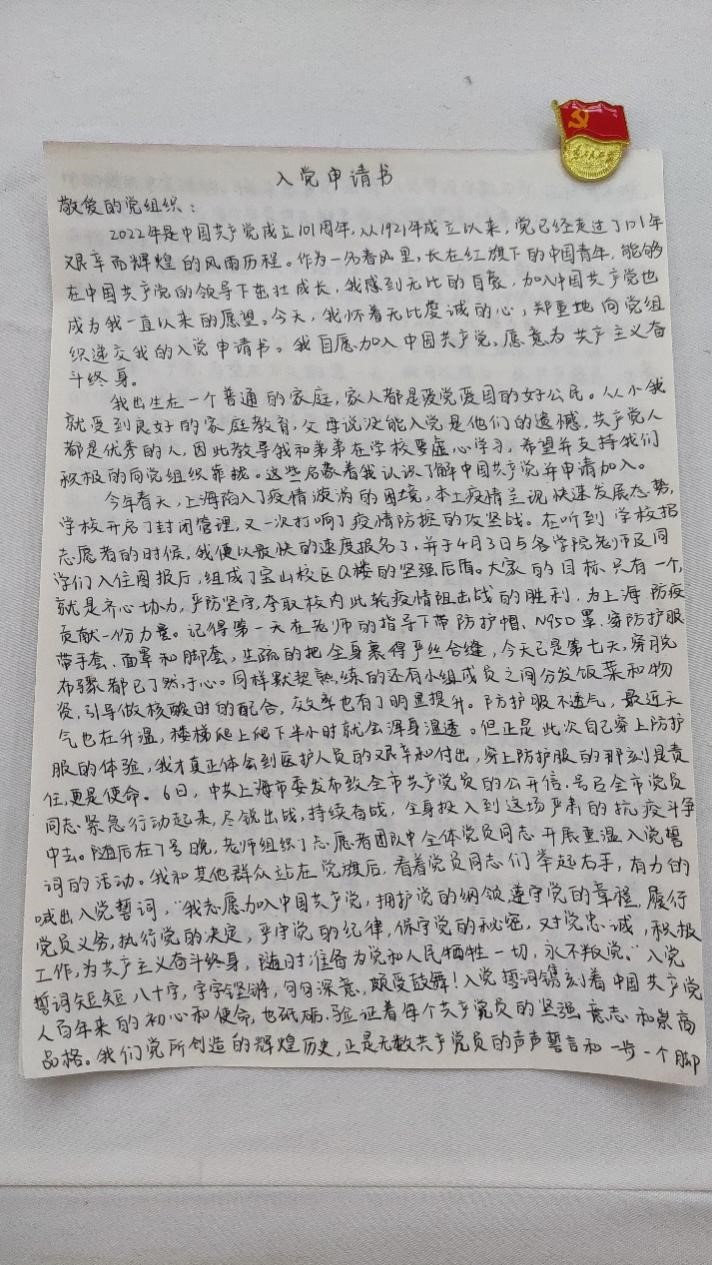 入党申请书
敬爱的党组织：
2022年是中国共产党成立101周年，从1921年成立以来，党已经走过了101年
艰辛而辉煌的风雨历程。作为一名春风里，长在红旗下的中国青年，能够
在中国共产党的领导下茁壮成长，我感到无比的自豪，加入中国共产党也
成为我一直以来的愿望。今天，我怀着无比虔诚的心，郑重地向党组
织递交我的入党申请书。我自愿加入中国共产党，愿意为共产主义奋
斗终身。
我出生在一个普通的家庭，家人都是爱党爱国的好公民。从小我
就受到良好的家庭教育，父母说没能入党是他们的遗憾，共产党人
都是优秀的人，因此教导我和弟弟在学校要虚心学习，希望并支持我们
积极的向党组织靠拢。这些启蒙着我认识了解中国共产党并申请加入。
今年春天，上海陷入了疫情漩涡的困境，本土疫情呈现快速发展态势，
学校开启了封闭管理，又一次打响了疫情防控的攻坚战。在听到学校招
志愿者的时候，我便以最快的速度报名了，并于4月3日与各学院老师及同
学们入住图报厅，组成了宝山校区Q楼的坚强后盾。大家的目标只有一个，
就是齐心协力，严防坚守，夺取校内此轮疫情阻击战的胜利，为上海防疫
贡献一份力量。记得第一天在老师的指导下带防护帽、N95口罩，穿防护服
带手套、面罩和脚套，生疏的把全身裹得严丝合缝，今天已是第七天，穿脱
布骤都已了然于心。同样默契熟练的还有小组成员之间分发饭菜和物
资，引导做核酸时的配合，效率也有了明显提升。防护服不透气，最近天
气也在升温，楼梯爬上爬下半小时就会浑身湿透。但正是此次自己穿上防护
服的体验，我才真正体会到医护人员的艰辛和付出，穿上防护服的那刻是责
任，更是使命。6日，中共上海市委发布致全市共产党员的公开信，号召全市党员
同志紧急行动起来，尽锐出战，持续奋战，全身投入到这场严肃的抗疫斗争
中去。随后在7号晚，老师组织了志愿者团队中全体党员同志开展重温入党誓
词的活动。我和其他群众站在党旗后，看着党员同志们举起右手，有力的
喊出入党誓词，“我志愿加入中国共产党，拥护党的纲领，遵守党的章程，履行
党员义务，执行党的决定，严守党的纪律，保守党的秘密，对党忠诚，积极
工作，为共产主义奋斗终身，随时准备为党和人民牺牲一切，永不叛党。”入党
誓词短短八十字，字字铿锵，句句深意，颇受鼓舞！入党誓词镌刻着中国共产党
人百年来的初心和使命，也砥砺、验证着每个共产党员的坚强意志和崇高
品格。我们党所创造的辉煌历史，正是无数共产党员的声声誓言和一步一个脚